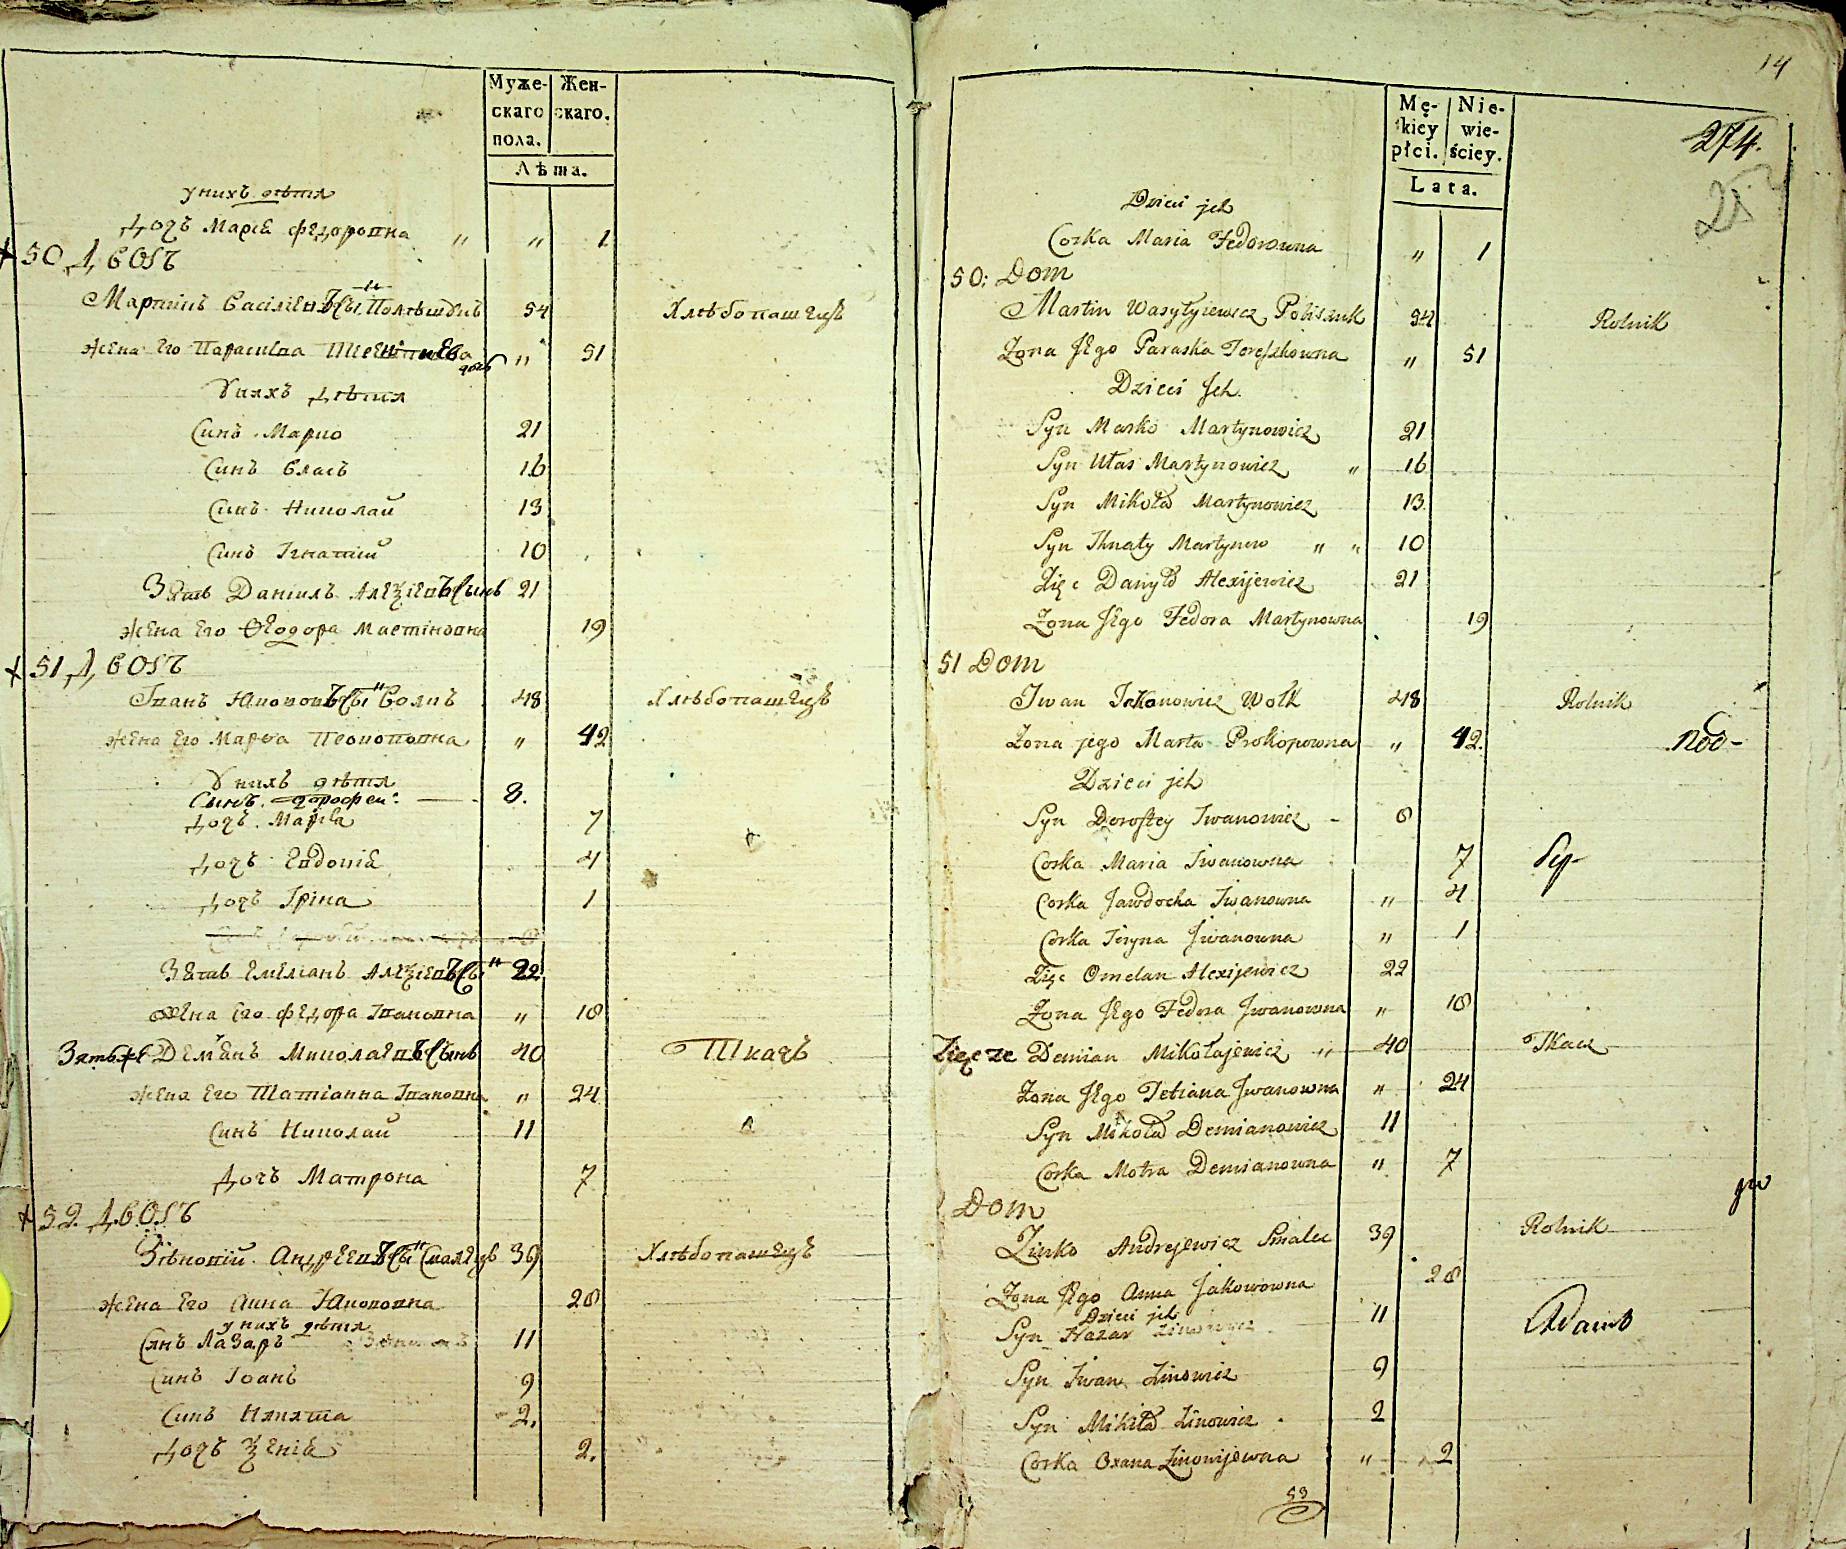 Муже-
скаго
пола.
Жен-
скаго.
Лѣта.
у нихъ дѣтя
Дочь Маріа Федоровна " " 1
50 Дворъ
Мартинъ Василіевъ Сынъ Полѣшукъ 54 Хлѣбопашецъ
жена его Параскева дочь " 51
У нихъ дѣтя
Синъ Марко 21
Синъ Власъ 16
Синъ Николай 13
Синъ Ігнатій 10
Зять Даніилъ Алеѯіевъ Сынъ 21
жена его Ѳеодора Мартіновна 19
51 Дворъ
Іванъ Юхновъ Сынъ Волкъ 48 Хлѣбопашецъ
жена его Марѳа Прокоповна " 42
У нихъ дѣтя
Сынъ Дорофей 8.
Дочъ Маріа 7
Дочъ Евдокіа 4
Дочъ Іріна 1
Зять Емеліанъ Алеѯіевъ Сынъ 22.
жена его Федора Івановна " 18
Зятьже Деміанъ Миколаевъ Сынъ 40 Ткачъ
жена его Татіанна Івановна " 24
Синъ Николай 11
Дочъ Матрона 7
52. Дворъ
Зѣновій Андреевъ Сынъ Смалецъ 39 Хлѣбопашецъ
жена его Анна Якововна 28
у нихъ дѣтя
Синъ Лазаръ 11
Синъ Іоанъ 9
Синъ Никита 2.
Дочъ Ѯеніа 2.
14
Mę-
kiey
płci.
Nie-
wie-
ściey.
Lata.
274.
Dzieci jch
Corka Maria Fedorowna " 1
50: Dom
Martin Wasylyiewicz Poliszuk 54 Rolnik
Żona Jego Paraska Tereszkowna " 51
Dzieci Jch.
Syn Marko Martynowicz 21
Syn Ułas Martynowicz " 16
Syn Mikoła Martynowicz 13
Syn Ihnaty Martynow " " 10
Zięc Danyło Alexijewicz 21
Żona Jego Fedora Martynowna 19
51 Dom
Iwan Jakonowicz Wołk 48 Rolnik
Żona jego Marta Prokopowna " 42.
Dzieci jch
Syn Doroftey Iwanowicz - 8
Corka Maria Iwanowna 7
Corka Jawdocha Iwanowna " 4
Corka Jryna Jwanowna " 1
Zięc Omelan Alexijewicz 22
Żona Jego Fedora Jwanowna " 18
Zięc ze Demian Mikołajewicz " 40 Tkacz
Żona Jego Tetiana Jwanowna " 24
Syn Mikoła Demianowicz 11
Corka Motra Demianowna " 7
Dom
Zinko Andrejewicz Smalec 39 Rolnik
Żona Jego Anna Jakowowna 28
Dzieci jch
Syn Nazar Zinowicz 11
Syn Iwan Zinowicz 9
Syn Mikita Zinowicz 2
Corka Oxana Zinowijewna " 2
53